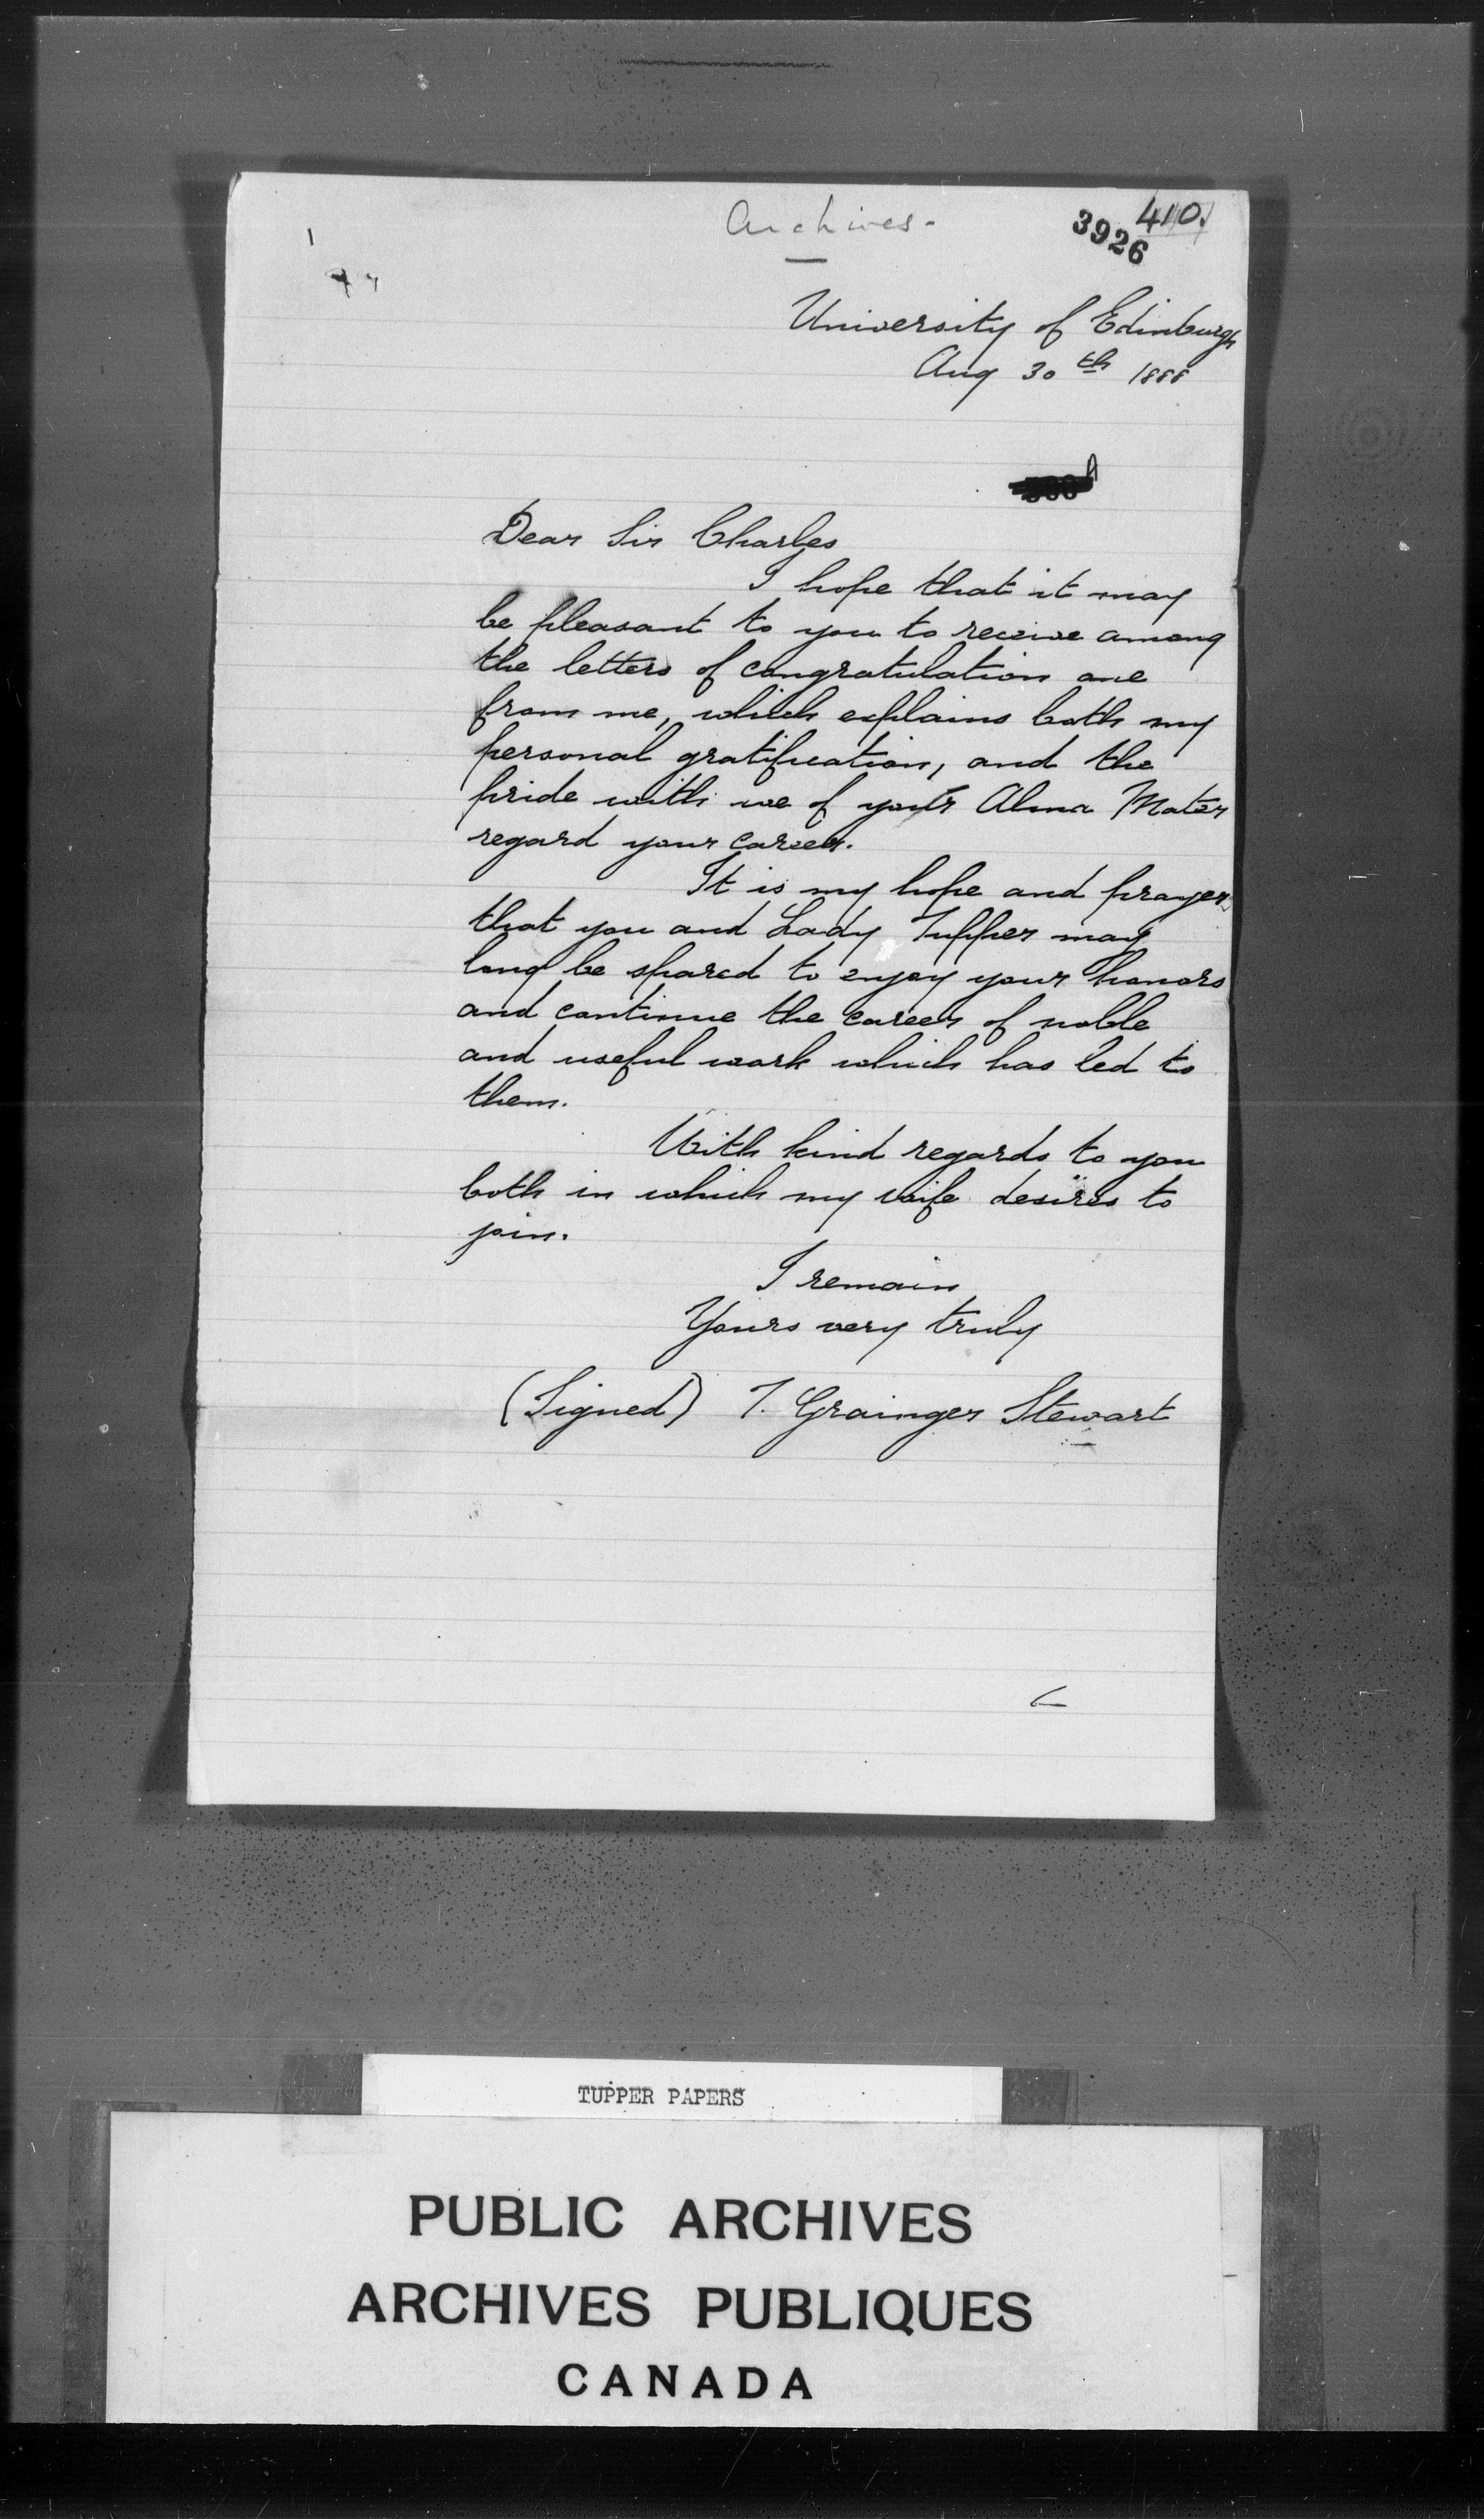 Archives.
410.
3926
University of Edinburgh
Aug 30th 1888
Dear Sir Charles
I hope that it may
be pleasant to you to receive among
the letters of congratulation one
from me, which explains both my
personal gratification, and the
pride with we of your Alma Mater
regard your career.
It is my hope and prayer
that you and Lady Tupper may
long be spared to enjoy your honors
and continue the career of noble
and useful work which has led to
them.
With kind regards to you
both in which my wife desires to
join.
I remain
Yours very truly
(Signed) T. Grainger Stewart
TUPPER PAPERS
PUBLIC ARCHIVES
ARCHIVES PUBLIQUES
CANADA